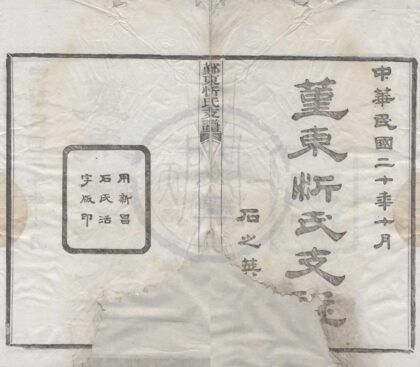 中華民國二十年十月
堇東忻氏支譜
石之英
鄞東忻氏支譜
用新昌
石氏活
字版印